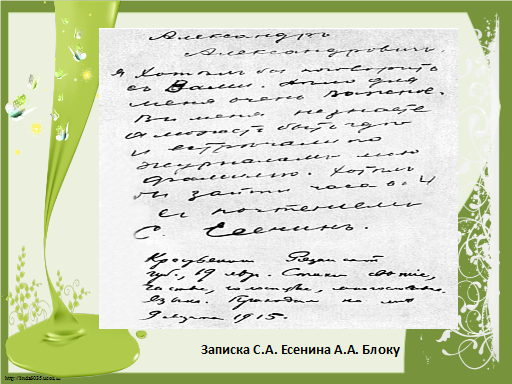 Александръ
Александровичъ.
Я хотѣлъ бы поговорить
съ Вами. Дѣло для
меня очень важное.
Вы меня не знаете
а можетъ быть гдѣ
и встрѣчали по
журналамъ мою
фамилію. Хотѣлъ
бы зайти часа въ 4
Съ почтеніемъ
С. Есенинъ.
Крестьянин Рязанской
губ., 19 лет. Стихи свежие,
чистые, голосистые, многословн.
язык. Приходил ко мне
9 марта 1915.
Записка С.А. Есенина А.А. Блоку